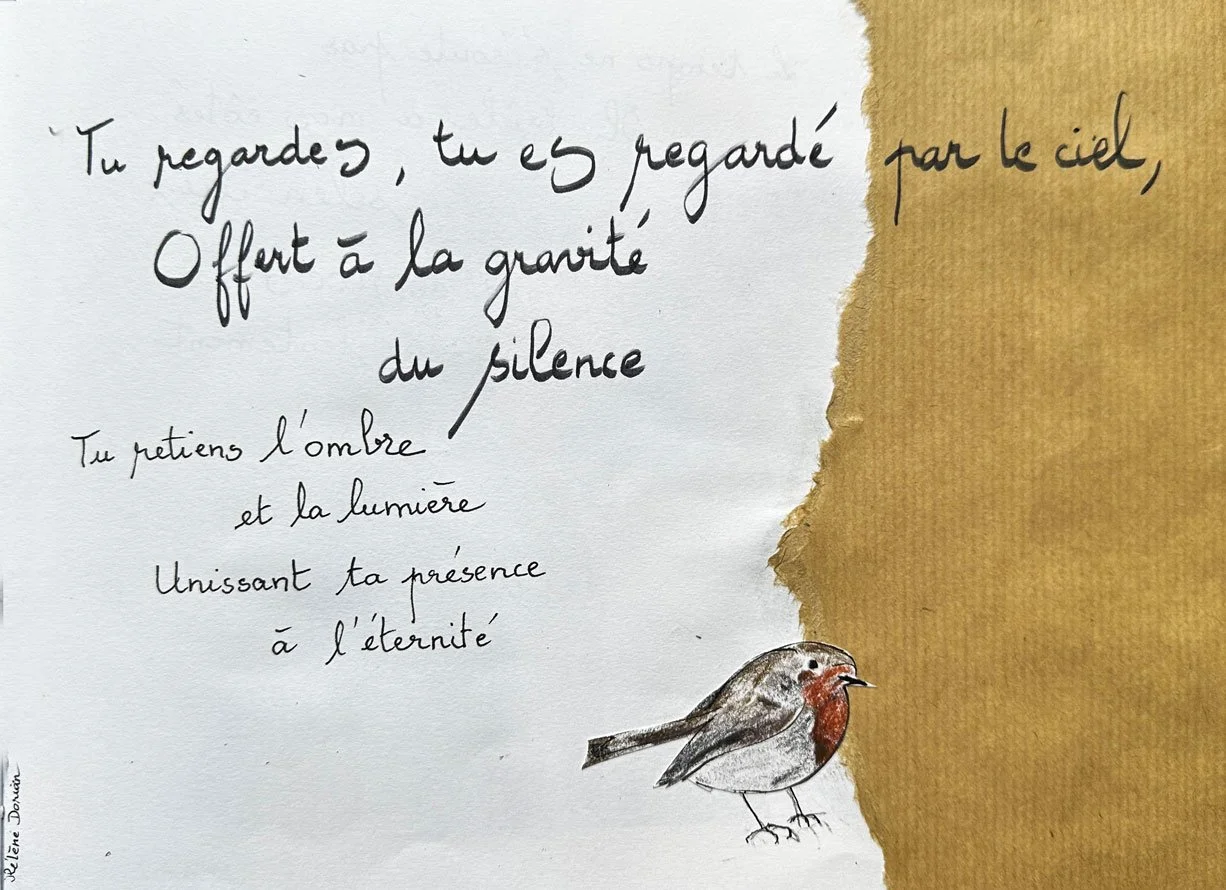 Tu regardes, tu es regardé par le ciel,
Offert à la gravité
du silence
Tu retiens l'ombre
et la lumière
Unissant ta présence
à l'éternité
Hélène Dorian